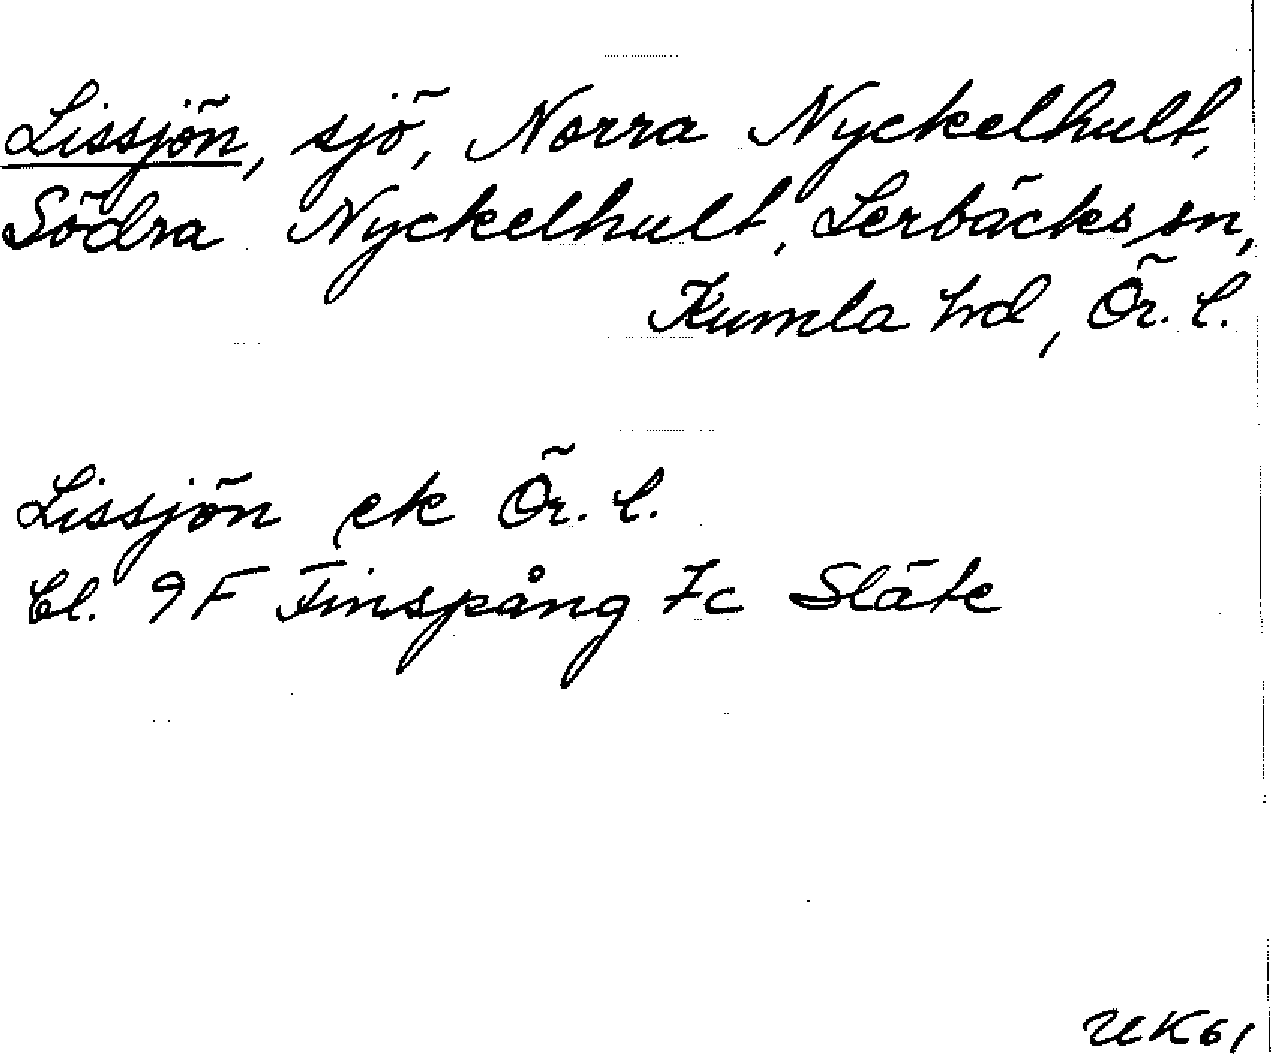 Lissjön, sjö, Norra Nyckelhult,
Södra Nyckelhult, Lerbäcks sn,
Kumla hd, Ör. l.
Lissjön ek Ör. l.
bl. 9F Finspång 7c Släte
UK61